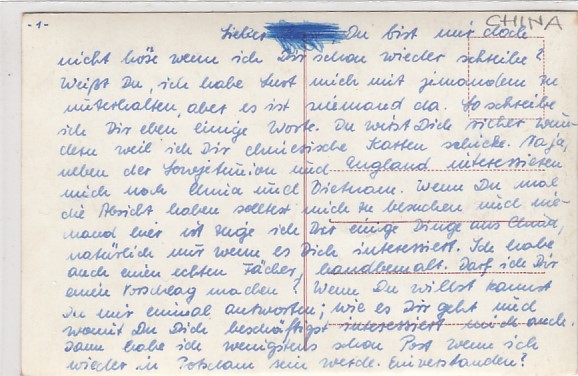 -1-
CHINA
Lieber Du bist mir doch
nicht böse wenn ich Dir schon wieder schreibe?
Weißt Du, ich habe Lust mich mit jemandem zu
unterhalten, aber es ist niemand da. So schreibe
ich Dir eben einige Worte. Du wirst Dich sicher wun-
dern weil ich Dir chinesische Karten schicke. Naja,
neben der Sowjetunion und England interessieren
mich noch China und Vietnam. Wenn Du mal
die Absicht haben solltest mich zu besuchen und nie-
mand hier ist zeige ich Dir einige Dinge aus China,
natürlich nur wenn es Dich interessiert. Ich habe
auch einen echten Fächer, handbemalt. Darf ich Dir
einen Vorschlag machen? Wenn Du willst kannst
Du mir einmal antworten; wie es Dir geht und
womit Du Dich beschäftigst interessiert mich auch.
Dann habe ich wenigstens schon Post wenn ich
wieder in Potsdam sein werde. Einverstanden?